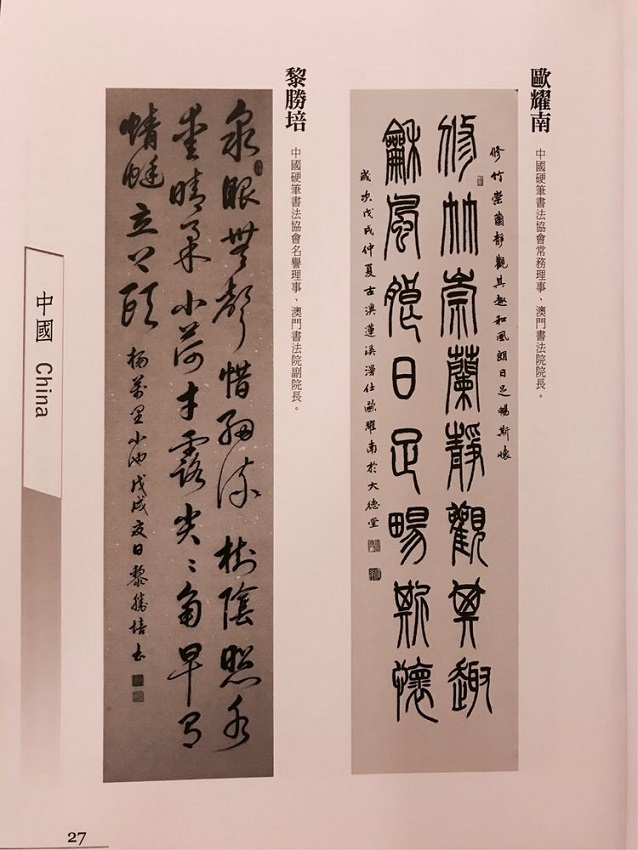 歐耀南
中國硬筆書法協會常務理事、澳門書法院院長。
修竹崇蘭靜觀其趣和風朗日足暢斯懷
修竹崇蘭靜觀其趣
龢風朖日足暢斯懷
歲次戊戌仲夏古澳蓮溪漫仕歐耀南於大德堂
黎勝培
中國硬筆書法協會名譽理事、澳門書法院副院長。
泉眼無聲惜細流樹陰照水
愛晴柔小荷才露尖〻角早有
蜻蜓立上頭
楊萬里小池戊戌夏日黎勝培書
中國 China
27